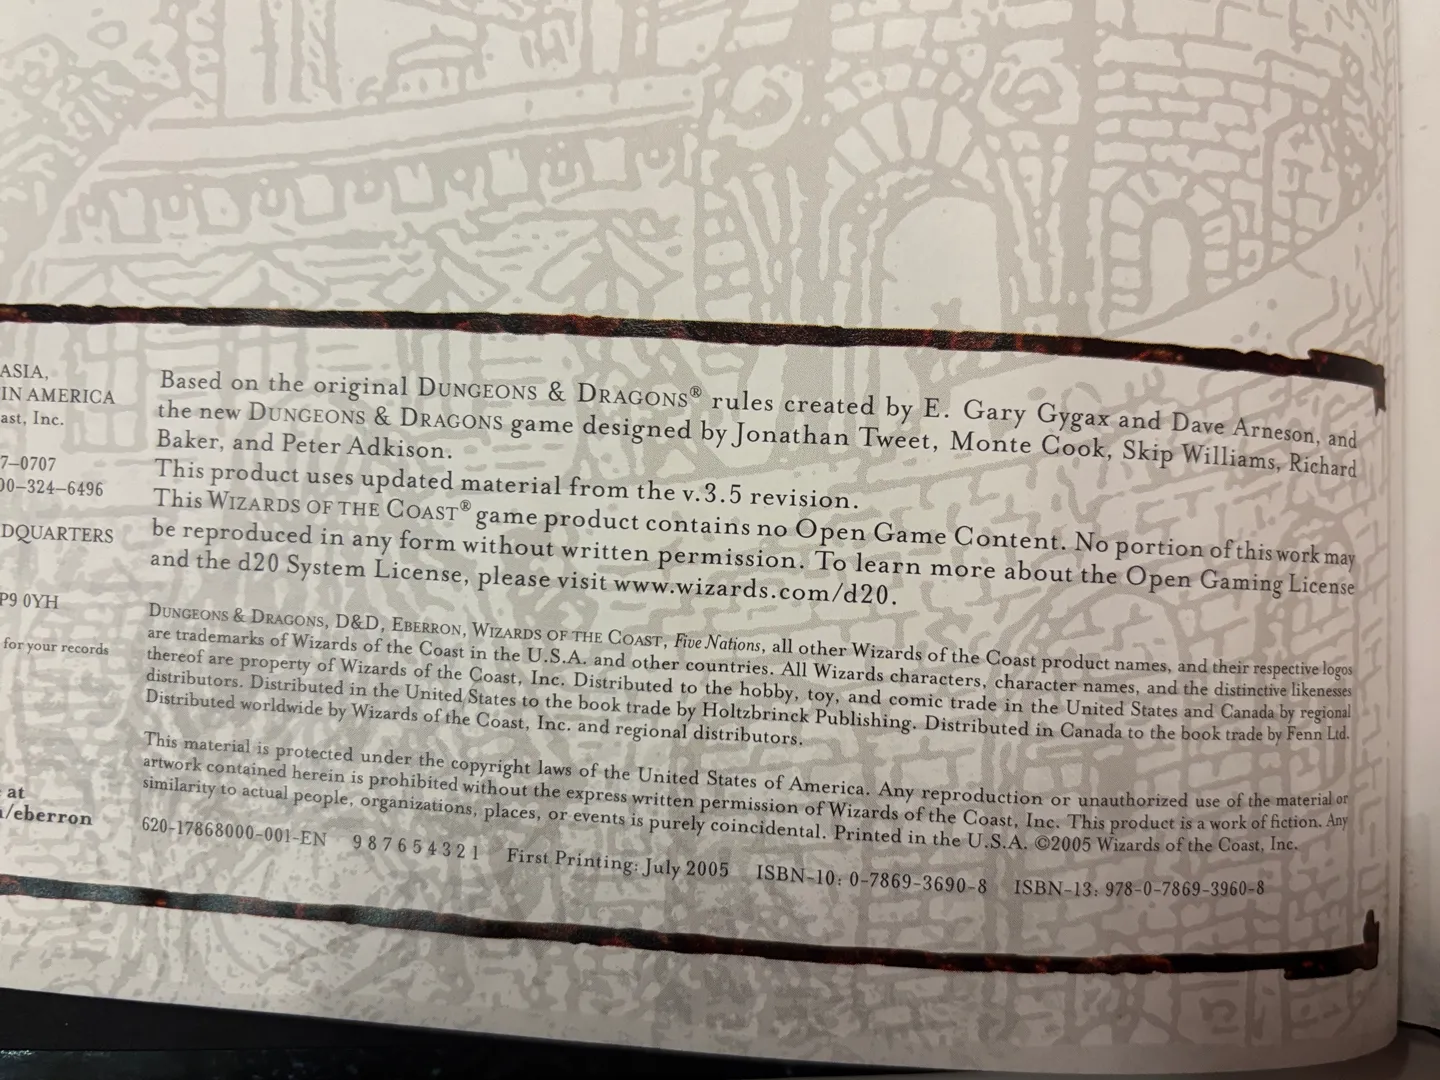 ASIA,
IN AMERICA
ast, Inc.
7–0707
00–324–6496
DQUARTERS
P9 0YH
for your records
at
/eberron
Based on the original DUNGEONS & DRAGONS® rules created by E. Gary Gygax and Dave Arneson, and
the new DUNGEONS & DRAGONS game designed by Jonathan Tweet, Monte Cook, Skip Williams, Richard
Baker, and Peter Adkison.
This product uses updated material from the v.3.5 revision.
This WIZARDS OF THE COAST® game product contains no Open Game Content. No portion of this work may
be reproduced in any form without written permission. To learn more about the Open Gaming License
and the d20 System License, please visit www.wizards.com/d20.
DUNGEONS & DRAGONS, D&D, EBERRON, WIZARDS OF THE COAST, Five Nations, all other Wizards of the Coast product names, and their respective logos
are trademarks of Wizards of the Coast in the U.S.A. and other countries. All Wizards characters, character names, and the distinctive likenesses
thereof are property of Wizards of the Coast, Inc. Distributed to the hobby, toy, and comic trade in the United States and Canada by regional
distributors. Distributed in the United States to the book trade by Holtzbrinck Publishing. Distributed in Canada to the book trade by Fenn Ltd.
Distributed worldwide by Wizards of the Coast, Inc. and regional distributors.
This material is protected under the copyright laws of the United States of America. Any reproduction or unauthorized use of the material or
artwork contained herein is prohibited without the express written permission of Wizards of the Coast, Inc. This product is a work of fiction. Any
similarity to actual people, organizations, places, or events is purely coincidental. Printed in the U.S.A. ©2005 Wizards of the Coast, Inc.
620-17868000-001-EN 9 8 7 6 5 4 3 2 1 First Printing: July 2005 ISBN-10: 0-7869-3690-8 ISBN-13: 978-0-7869-3960-8